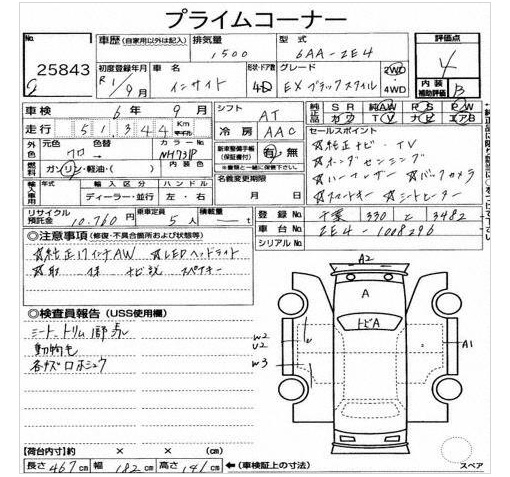 プライムコーナー
No.
25843
車歴(自家用以外は記入)
排気量
1500
型式
6AA-ZE4
評価点
4
初度登録年月
R1/9月
車名
インサイト
形状・ドア数
4D
グレード
EX ブラックスタイル
2WD
4WD
内装補助評価
B
車検
6年9月
シフト
AT
純正品
SR 純AW PS PW
カワ TV ナビ エアB
走行
51,344 Km マイル
冷房
AAC
セールスポイント
外色
元色
クロ→
色替
カラーNo.
NH731P
新車整備手帳(保証書付)
有・無
☆純正ナビ・TV
☆ホンダセンシング
燃料
ガソリン・軽油・( )
内装色
名義変更期限
月 日
☆バックカメラ
☆スマートキー ☆シートヒーター
輸入車
年式
輸入区分
ハンドル
ディーラー・並行
左・右
リサイクル預託金
10,760円
乗車定員
5人
積載量
t
登録No.
千葉 330 と 3482
車台No.
ZE4-1008296
シリアルNo.
◎注意事項(修復・不具合箇所および状態等)
☆純正17インチAW ☆LEDヘッドライト
☆取 保 ナビ説 スペアキー
◎検査員報告(USS使用欄)
シート、トリム1部 点
動物毛
各キズロホシュウ
A2
A
トビA
W2
U2
W3
A1
スペア
【荷台内寸】約 × × (cm)
長さ467cm 幅182cm 高さ141cm ←(車検証上の寸法)